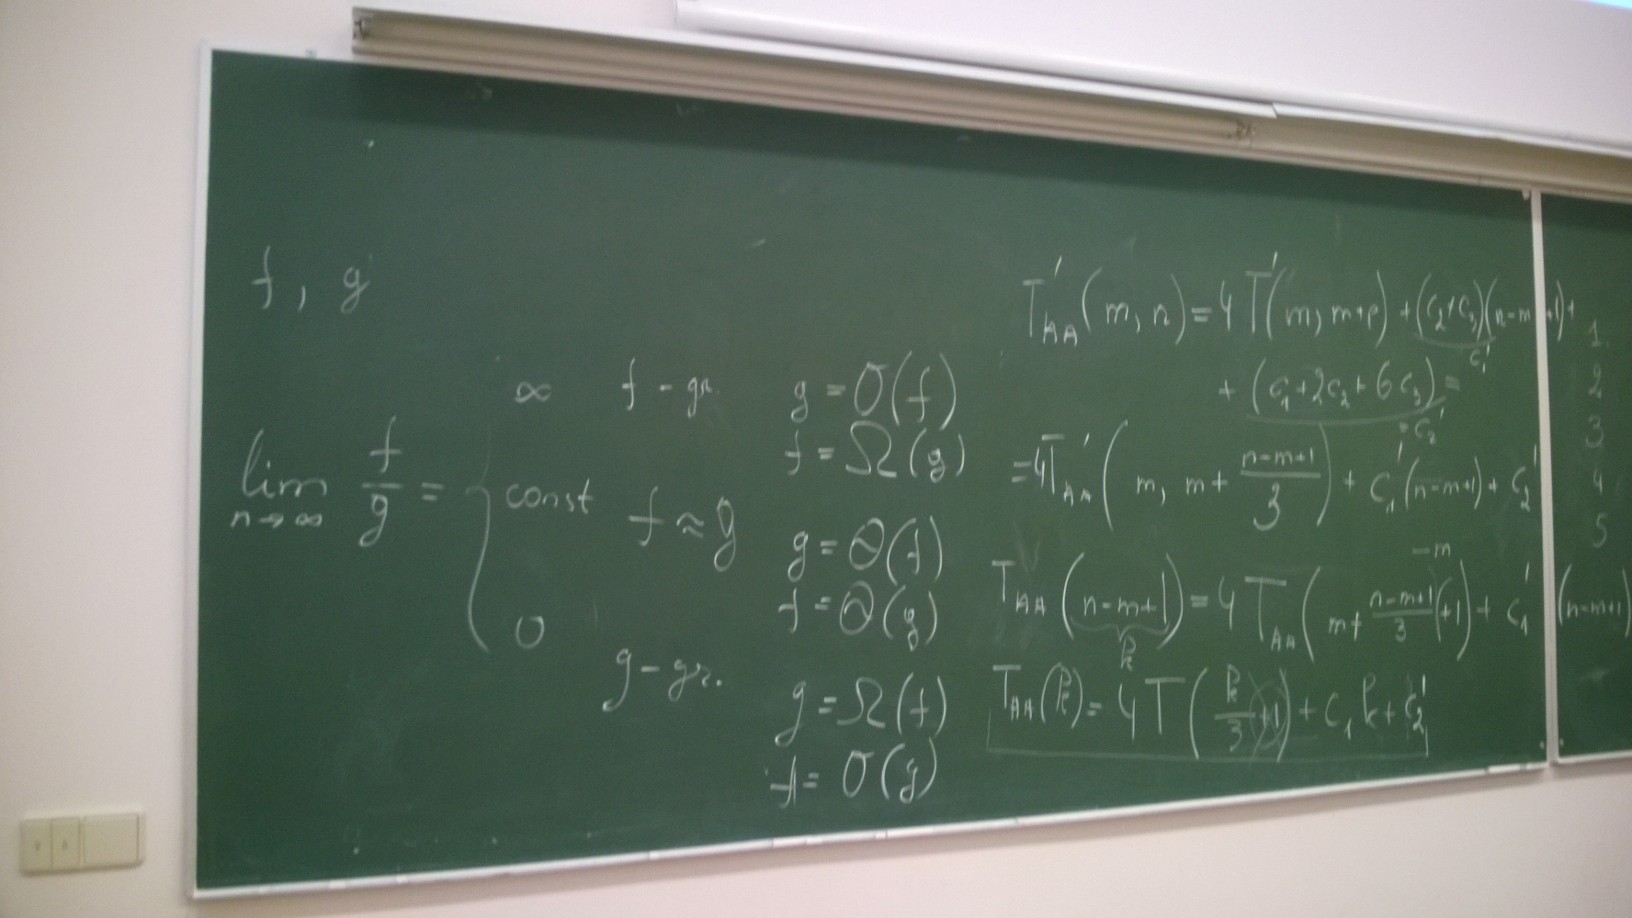 f, g
lim n→∞ f/g = {
∞ f - gr. g = O(f)
f = Ω(g)
const f ≈ g g = Θ(f)
f = Θ(g)
0 g - gr. g = Ω(f)
f = O(g)
T'AA(m, n) = 4 T'(m, m+p) + (c2+c3)(n-m+1) +
c1'
+ (c1+2c2+6c3) =
= c2'
= 4T'AA(m, m + (n-m+1)/3) + c1'(n-m+1) + c2'
-m
TAA(n-m+1) = 4 TAA(m + (n-m+1)/3 (+1) + c1' (n-m+1)
k
TAA(k) = 4T(k/3 +1) + c1 k + c2'
1.
2
3
4
5